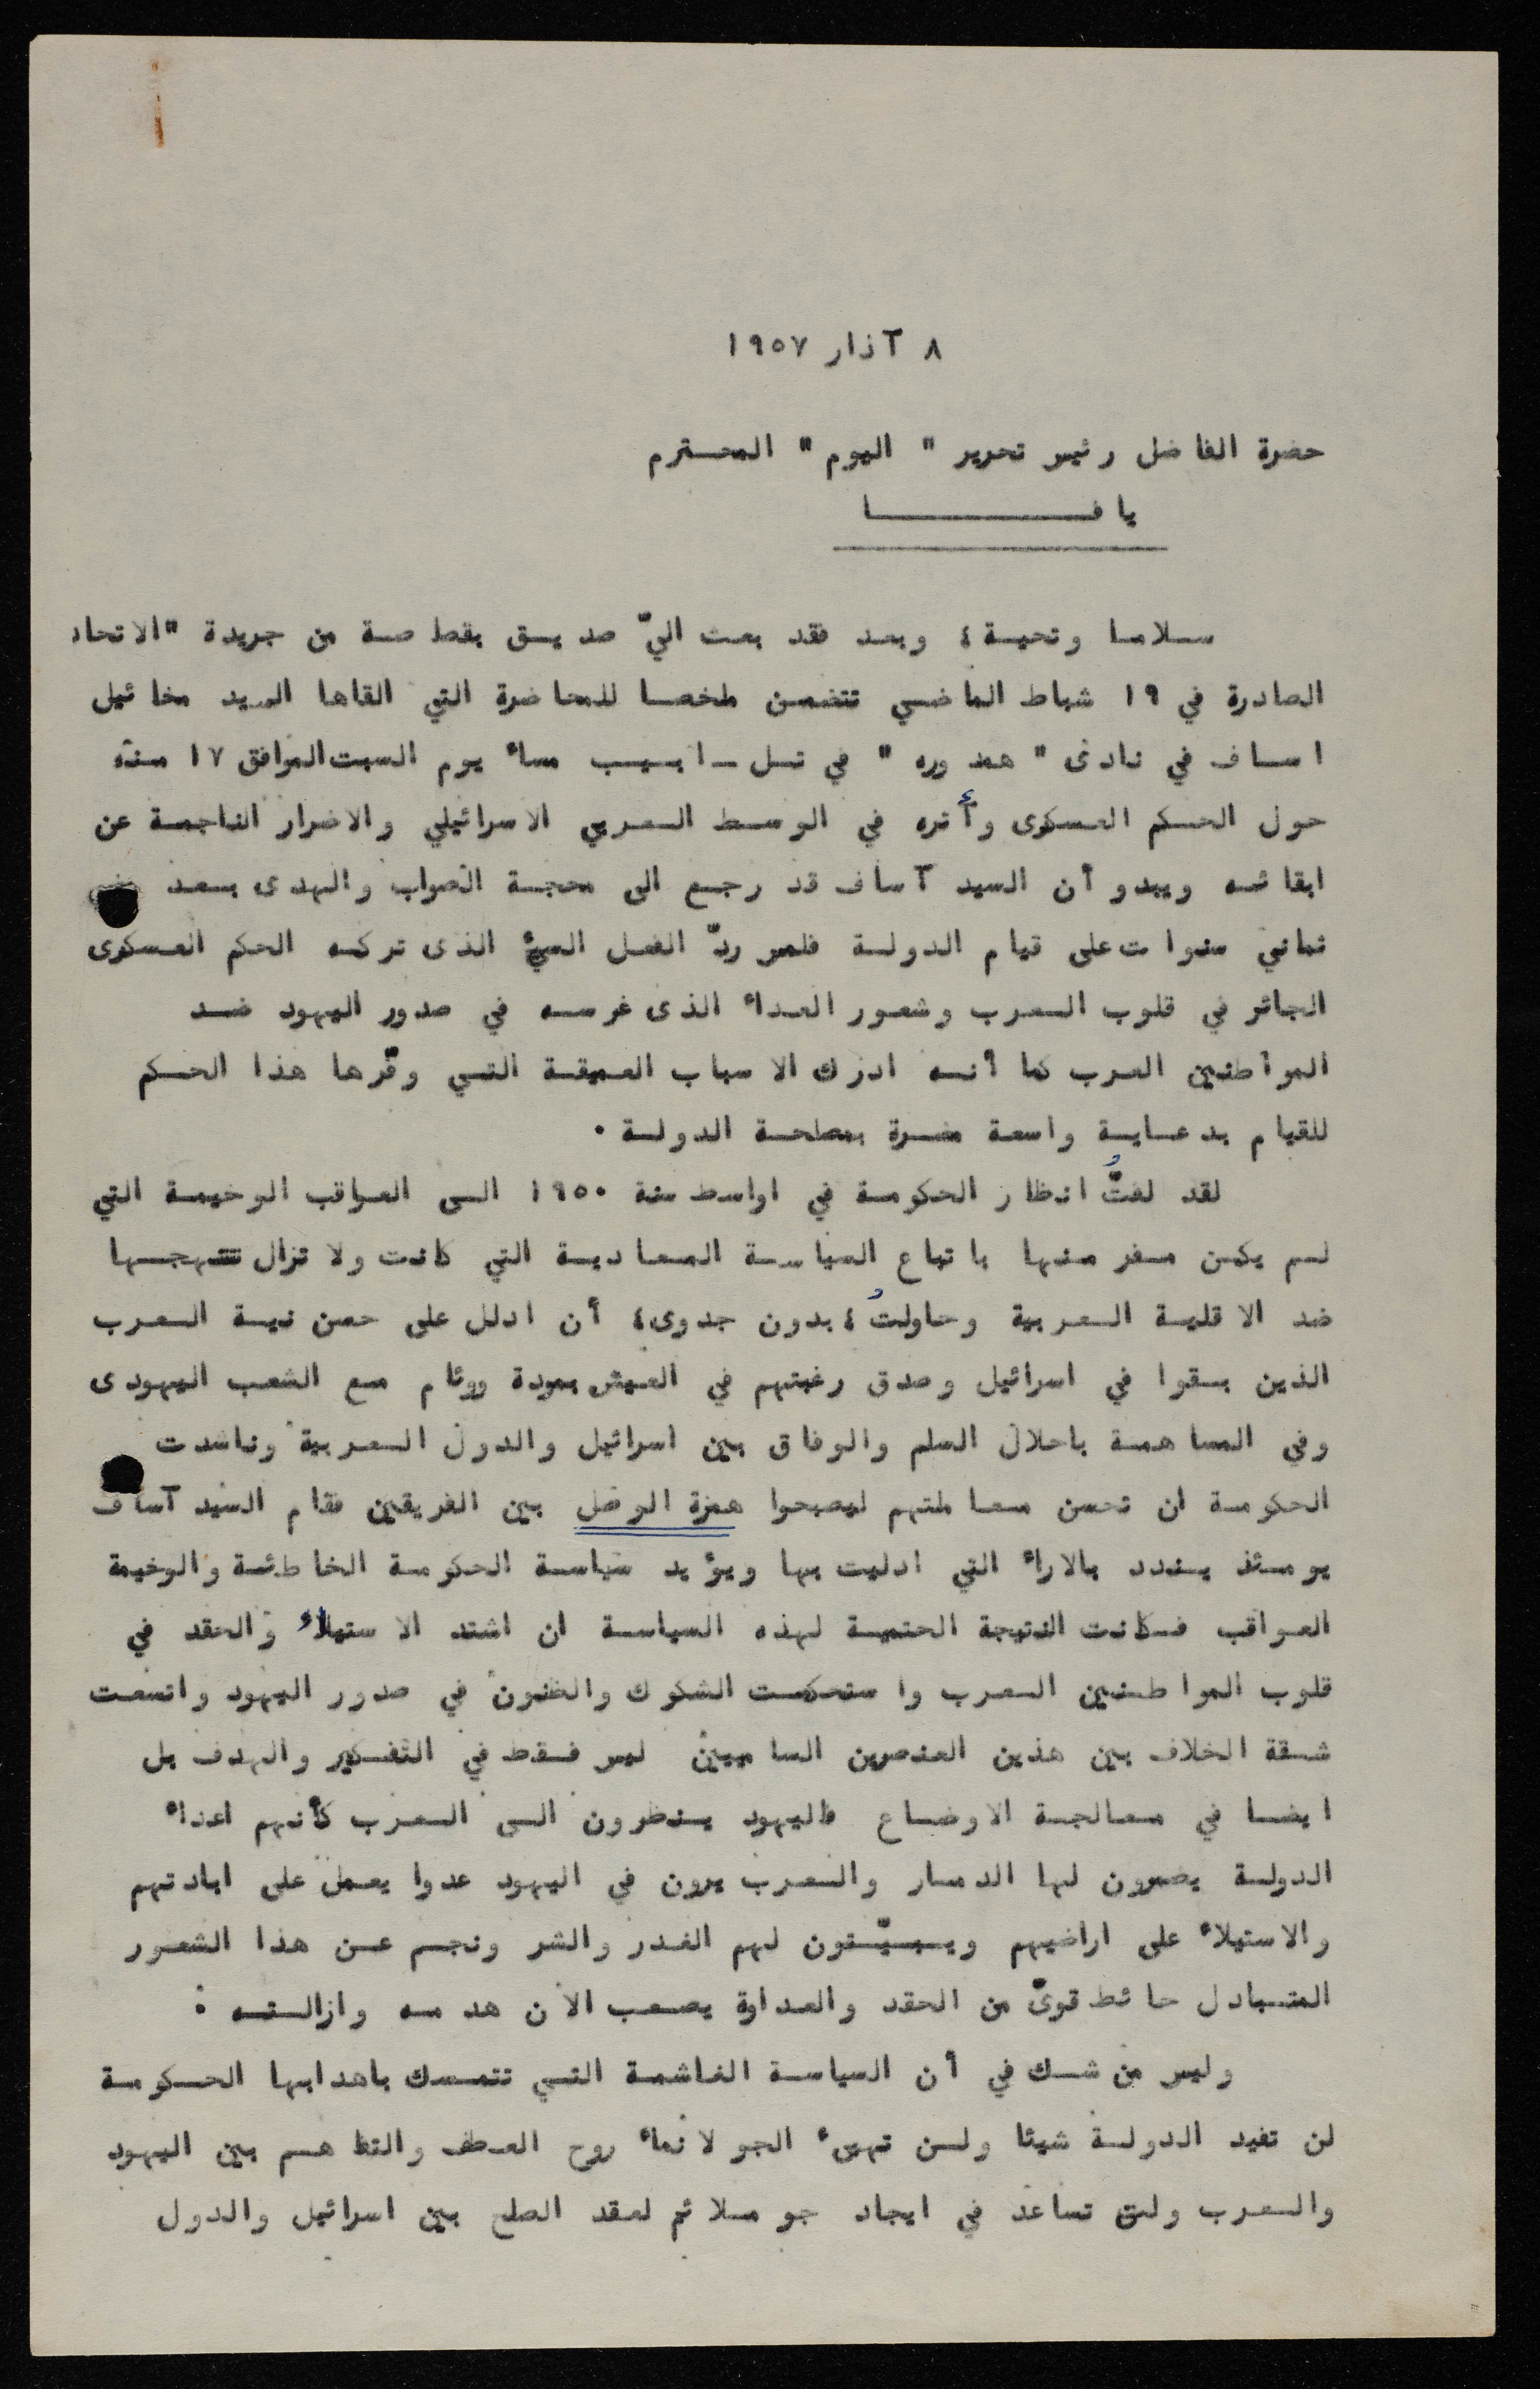 ٨ آذار ١٩٥٧
حضرة الفاضل رئيس تحرير " اليوم " المحترم
يافــــــا
سلاما وتحية ، وبعد فقد بعث اليّ صديق بقصاصة من جريدة "الاتحاد
الصادرة في ١٩ شباط الماضي تتضمن ملخصا للمحاضرة التي القاها السيد مخائيل
اساف في نادى " " في تل ـ ابيب مساء يوم السبت الموافق ١٧ منه
حول الحكم العسكرى وأثره في الوسط العربي الاسرائيلي والاضرار الناجمة عن
ابقائه ويبدو أن السيد آساف قد رجع الى محجة الصواب والهدى بعد
ثماني سنوات على قيام الدولة فلمس ردّ الفعل السيّء الذى تركه الحكم العسكرى
الجائر في قلوب العرب وشعور العداء الذى غرسه في صدور اليهود ضد
المواطنين العرب كما أنه ادرك الاسباب العميقة التي وفّرها هذا الحكم
للقيام بدعاية واسعة مضرة بمصلحة الدولة .
لقد لفتُّ انظار الحكومة في اواسط سنة ١٩٥٠ الى العواقب الوخيمة التي
لم يكن مفر منها باتباع السياسة المعادية التي كانت ولا تزال تنتهجها
ضد الاقلية العربية وحاولتُ ، بدون جدوى ، أن ادلل على حسن نية العرب
الذين بقوا في اسرائيل وصدق رغبتهم في العيش بمودة ووئام مع الشعب اليهودى
وفي المساهمة باحلال السلم والوفاق بين اسرائيل والدول العربية وناشدت
الحكومة ان تحسن معاملتهم ليصبحوا همزة الوصل بين الفريقين فقام السيد آساف
يومئذ يندد بالاراء التي ادليت بها ويؤيد سياسة الحكومة الخاطئة والوخيمة
العواقب فكانت النتيجة الحتمية لهذه السياسة ان اشتد الاستيلاء والحقد في
قلوب المواطنين العرب واستحكمت الشكوك والظنون في صدور اليهود واتسعت
شقة الخلاف بين هذين العنصرين الساميين ليس فقط في التفكير والهدف بل
ايضا في معالجة الاوضاع فاليهود ينظرون الى العرب كأنهم اعداء
الدولة يضمرون لها الدمار والعرب يرون في اليهود عدوا يعمل على ابادتهم
والاستيلاء على اراضيهم ويبيّتون لهم الغدر والشر ونجم عن هذا الشعور
المتبادل حائط قوىّ من الحقد والعداوة يصعب الان هدمه وازالته .
وليس من شك في أن السياسة الغاشمة التي تتمسك باهدابها الحكومة
لن تفيد الدولة شيئا ولن تهىء الجو لانماء روح العطف والتفاهم بين اليهود
والعرب ولن تساعد في ايجاد جو ملائم لعقد الصلح بين اسرائيل والدول